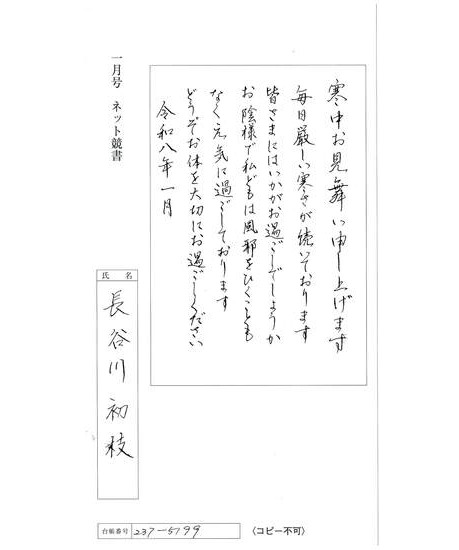 寒中お見舞い申し上げます
毎日厳しい寒さが続いております
皆さまにはいかがお過ごしでしょうか
お陰様で私どもは風邪をひくことも
なく元気に過ごしております
どうぞお体を大切にお過ごしください
令和八年一月
一月号 ネット競書
氏名
長谷川初枝
台帳番号 237-5799
〈コピー不可〉